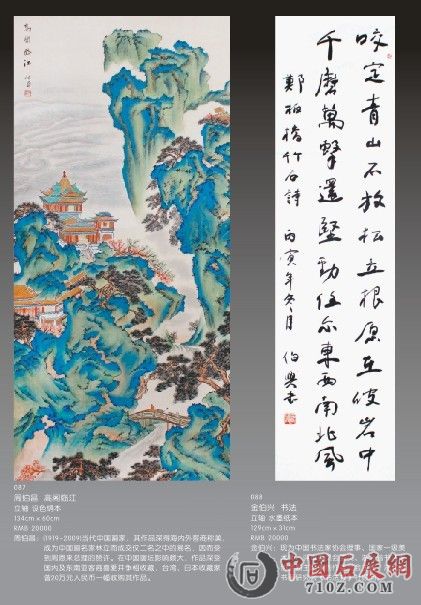 高閣臨江
咬定青山不放松立根原在破岩中
千磨萬擊還堅勁任尔東西南北風
鄭板橋竹石詩 丙寅年冬月 伯興書
087
周伯昌 高阁临江
立轴 设色绢本
134cm x 60cm
RMB 20000
周伯昌：(1919-2009)当代中国画家，其作品深得海内外客商称美，
成为中国画名家林立而成交仅二名之中的 名，因而受
到周恩来总理的赞许。在中国画坛影响颇大，作品深受
国内及东南亚客商喜爱并争相收藏，台湾、日本收藏家
曾20万元人民币一幅收购其作品。
088
金伯兴 书法
立轴 水墨纸本
129cm x 31cm
RMB 20000
金伯兴：现为中国书法家协会理事、国家一级美
中国石展网
710Z.com